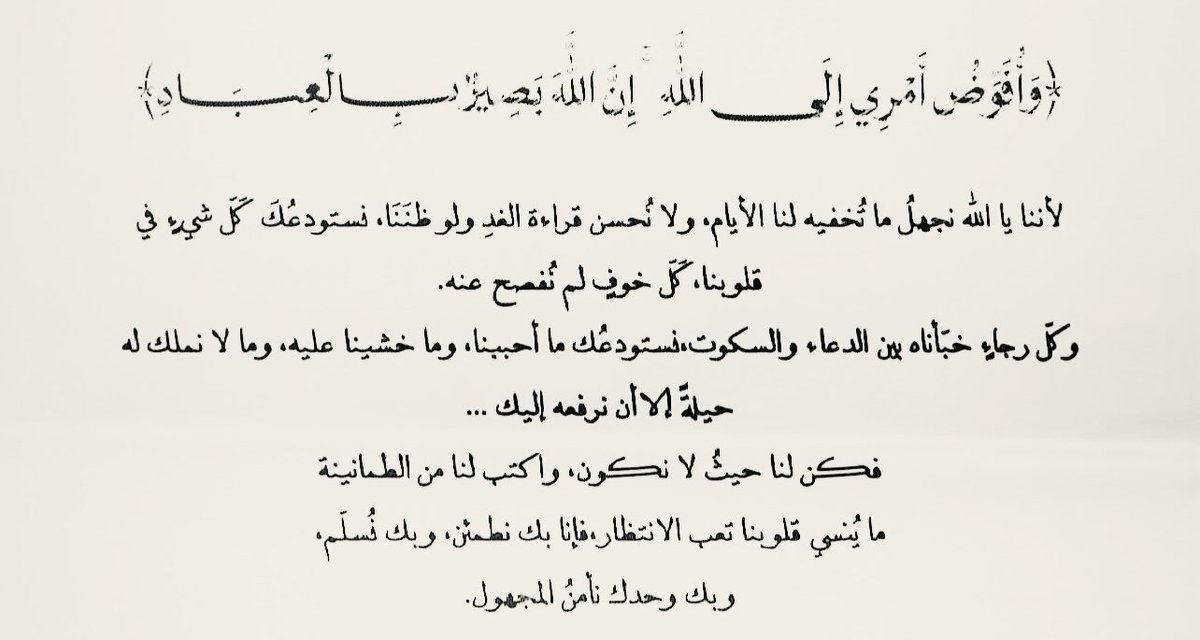 ﴿وَأُفَوِّضُ أَمْرِي إِلَى اللَّهِ ۚ إِنَّ اللَّهَ بَصِيرٌ بِالْعِبَادِ﴾
لأننا يا الله نجهلُ ما تُخفيه لنا الأيام، ولا نُحسن قراءة الغدِ ولو ظنَنَا، نستودعُكَ كَلّ شيءٍ في
قلوبنا، كَلّ خوفٍ لم نُفصح عنه.
وكلّ رجاءٍ خبّأناه بين الدعاء والسكوت،نستودعُك ما أحببنا، وما خشينا عليه، وما لا نملك له
حيلةً إلا أن نرفعه إليك ...
فكن لنا حيثُ لا نكون، واكتب لنا من الطمانينة
ما يُنسي قلوبنا تعب الانتظار،فإنا بك نطمئن، وبك نُسلّم،
وبك وحدك نأمنُ المجهول.